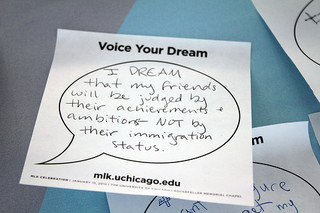 Voice Your Dream
I DREAM
that my friends
will be judged by
their achievements +
ambitions NOT by
their immigration
status.
mlk.uchicago.edu
MLK CELEBRATION | JANUARY 16, 2012 | THE UNIVERSITY OF CHICAGO | ROCKEFELLER MEMORIAL CHAPEL
Voice Your